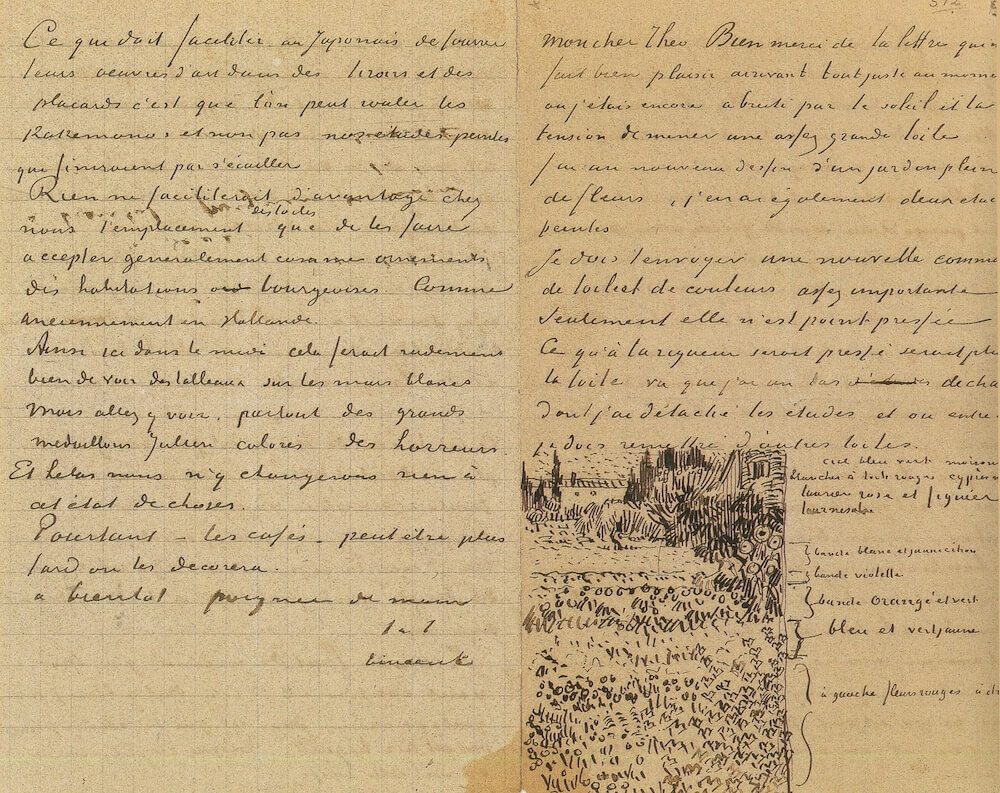 Ce qui doit faciliter au Japonais de fourrer
leurs oeuvres d'art dans des tiroirs et des
placards c'est que l'on peut rouler les
Kakemonos et non pas nos études peintes
qui finiraient par s'écailler
Rien ne faciliterait d'avantage chez
nous l'emplacement des toiles que de les faire
accepter generalement comme ornements
des habitations bourgeoises. Comme
anciennement en Hollande.
Ainsi ici dans le midi cela ferait rudement
bien de voir des tableaux sur les murs blancs
Mais allez y voir. partout des grands
medaillons Julien colorés des horreurs.
Et helas nous n'y changerons rien à
cet état de choses.
Pourtant – les cafés – peut être plus
tard on les decorera.
a bientot poignee de main
t. à t.
Vincent
512
Mon cher Theo Bien merci de ta lettre qui m
fait bien plaisir arrivant tout juste au moment
ou j'etais encore abruti par le soleil et la
tension de mener une assez grande toile
J'ai un nouveau dessin d'un jardin plein
de fleurs, j'en ai également deux etudes
peintes
Je dois t'envoyer une nouvelle comma
de toile et de couleurs assez importante
Seulement elle n'est point pressée
Ce qu'à la rigueur serait pressé serait plu
la toile vu que j'ai un tas de cha
dont j'ai détaché les études et ou entre
je dois remettre d'autres toiles.
ciel bleu vert maisons
blanches à toits rouges cypres
laurier rose et figuier
tournesols
bande blanc et jaune citron
bande violette
bande orangé et vert
bleu et vert jaune
à gauche fleurs rouges à d